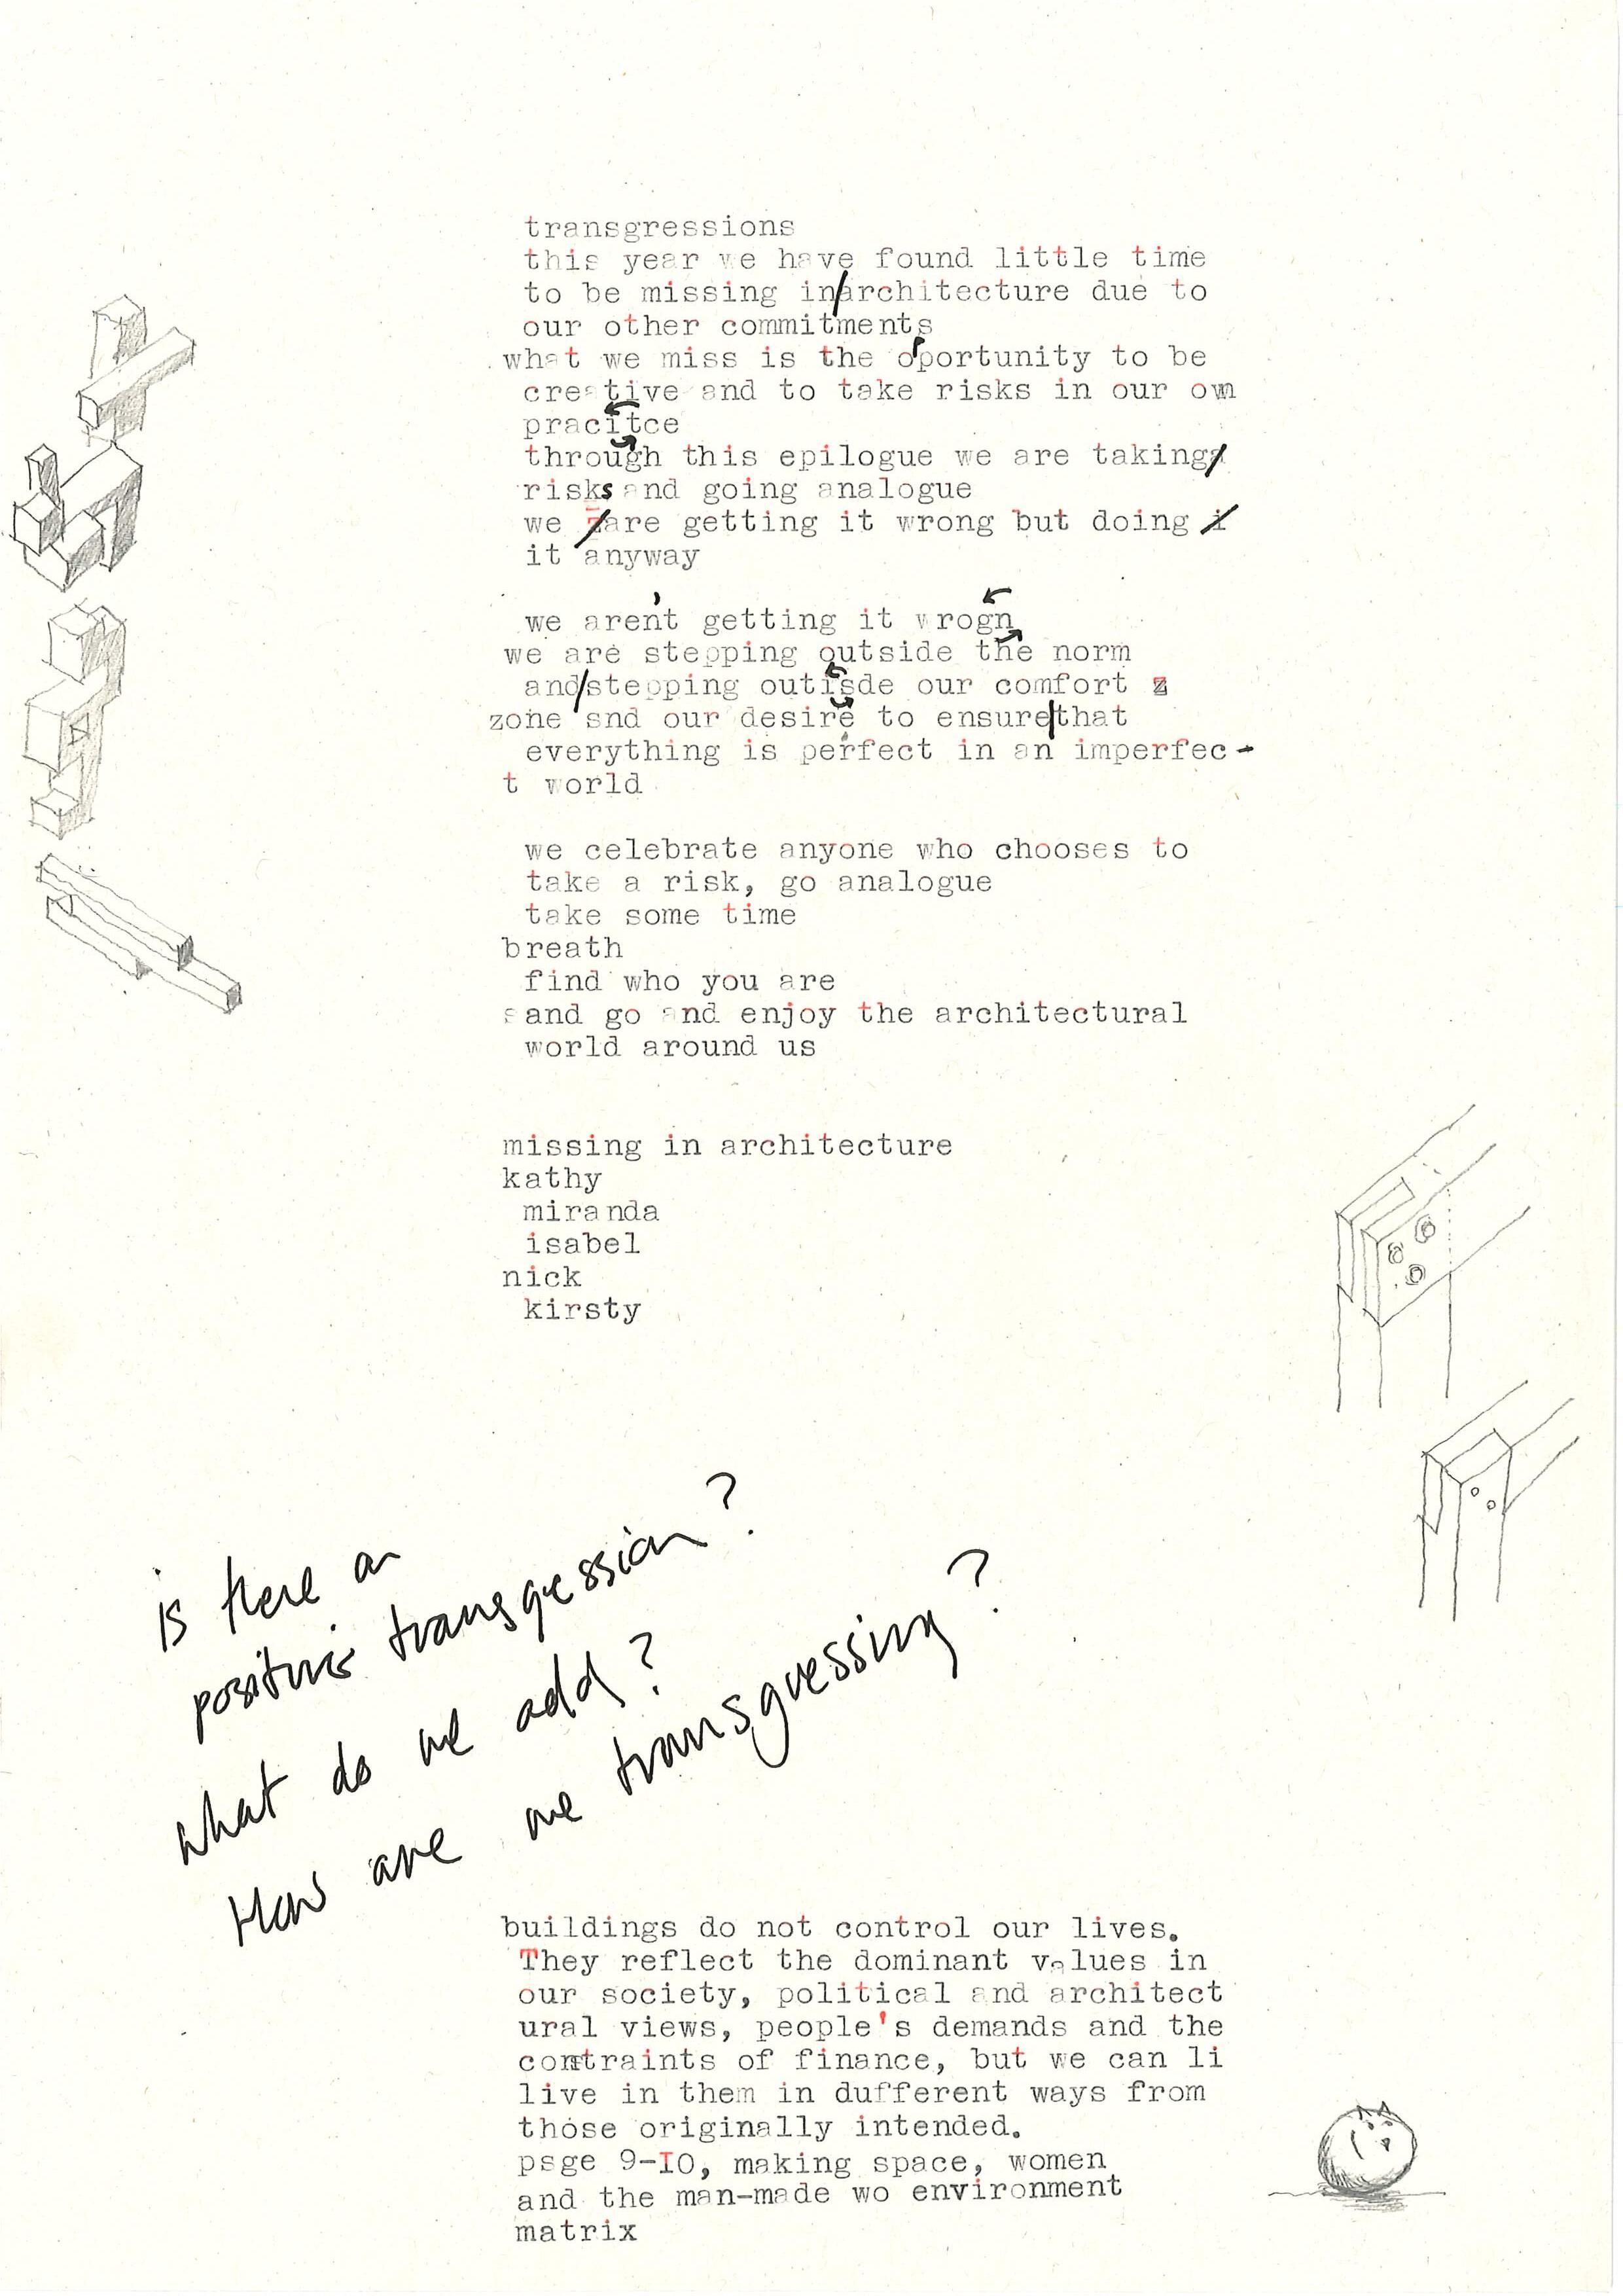 transgressions
this year we have found little time
to be missing in/architecture due to
our other commitments
what we miss is the opportunity to be
creative and to take risks in our own
pracitce
through this epilogue we are taking
risks and going analogue
we are getting it wrong but doing i
it anyway
we aren't getting it wrogn
we are stepping outside the norm
and/stepping outisde our comfort z
zone snd our desire to ensure|that
everything is perfect in an imperfec-
t world
we celebrate anyone who chooses to
take a risk, go analogue
take some time
breath
find who you are
sand go and enjoy the architectural
world around us
missing in architecture
kathy
miranda
isabel
nick
kirsty
is there a
positive transgression?
what do we add?
How are we transgressing?
buildings do not control our lives.
They reflect the dominant values in
our society, political and architect
ural views, people's demands and the
contraints of finance, but we can li
live in them in dufferent ways from
those originally intended.
psge 9-IO, making space, women
and the man-made wo environment
matrix